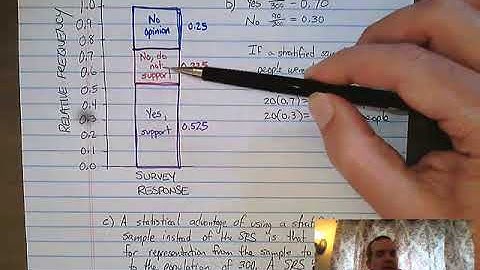 b) Yes 210/300 = 0.70
No 90/300 = 0.30
If a stratified
people were
20(0.7)=
20(0.3)= people
RELATIVE FREQUENCY
1.0
0.9
0.8
0.7
0.6
0.5
0.4
0.3
0.2
0.1
0.0
No
opinion
0.25
No, do
not
support
0.225
Yes,
support
0.525
SURVEY
RESPONSE
c) A statistical advantage of using a
sample instead of the SRS is that
for representation from the sample to
to the population of 300. A SRS